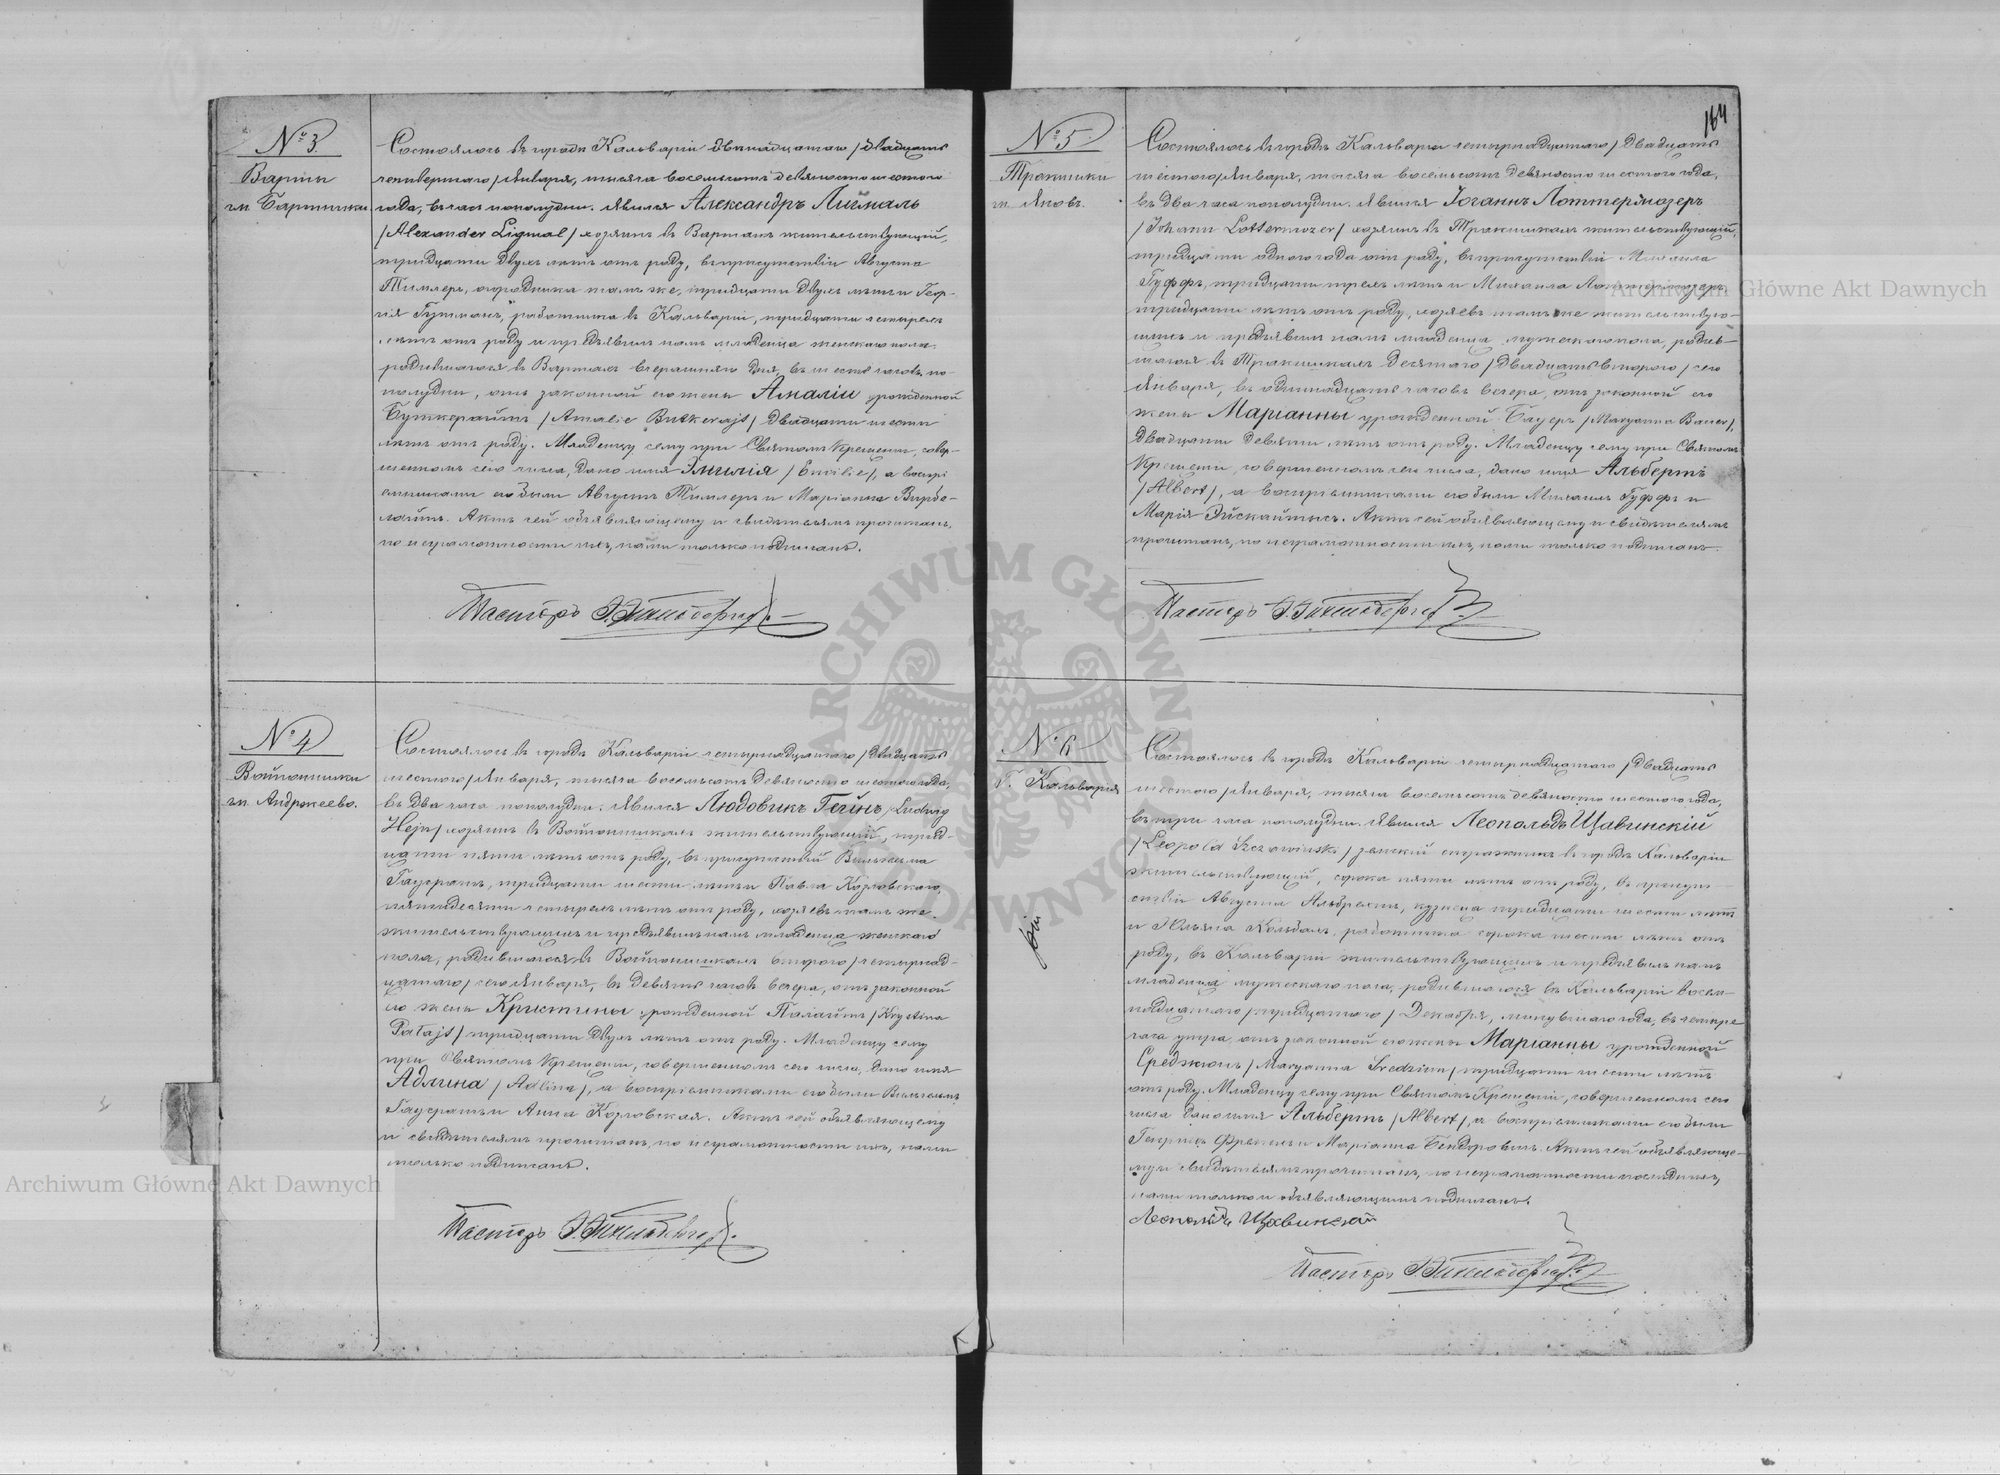 № 3.
Варты
гм. Бартники
Состоялось въ городѣ Кальваріи двѣнадцатаго /двадцать
четвертаго/ Января, тысяча восемьсотъ девяносто шестого
года, въ часъ пополудни. Явился Александръ Лигмаль
/Alexander Ligmal/ хозяинъ въ Вартахъ жительствующій,
тридцати двухъ лѣтъ отъ роду, въ присутствіи Августа
Тиллеръ, огородника тамъ же, тридцати двухъ лѣтъ и Геор-
гія Гутманъ, работника въ Кальваріи, тридцати четырехъ
лѣтъ отъ роду и предъявилъ намъ младенца женскаго пола,
родившагося въ Вартахъ вчерашняго дня, въ шесть часовъ по-
полудни, отъ законной его жены Амаліи урожденной
Буткерайтъ /Amalie Butkerajt/ двадцати шести
лѣтъ отъ роду. Младенцу сему при Святомъ Крещеніи, совер-
шенномъ сего числа, дано имя Эмилія /Emilie/, а воспрі-
емниками его были Августъ Тиллеръ и Маріанна Вирбо-
лайтъ. Актъ сей объявляющему и свидѣтелямъ прочитанъ,
по неграмотности ихъ, нами только подписанъ.
Пасторъ
№ 4
Войпонишки
гм. Андржеево.
Состоялось въ городѣ Кальваріи четырнадцатаго /двадцать
шестого/ Января, тысяча восемьсотъ девяносто шестого года,
въ два часа пополудни. Явился Людовикъ Гейнъ /Ludwig
Hejn/ хозяинъ въ Войпонишкахъ жительствующій, трид-
цати пяти лѣтъ отъ роду, въ присутствіи Вильгельма
Гаусратъ, тридцати шести лѣтъ и Павла Козловскаго,
пятидесяти четырехъ лѣтъ отъ роду, хозяевъ тамъ же
жительствующихъ и предъявилъ намъ младенца женскаго
пола, родившагося въ Войпонишкахъ второго /четырнад-
цатаго/ сего Января, въ девять часовъ вечера, отъ законной
его жены Кристины урожденной Палайтъ /Krystina
Palajt/ тридцати двухъ лѣтъ отъ роду. Младенцу сему
при Святомъ Крещеніи, совершенномъ сего числа, дано имя
Адлина /Adlina/, а воспріемниками его были Вильгельмъ
Гаусратъ и Анна Козловская. Актъ сей объявляющему
и свидѣтелямъ прочитанъ, по неграмотности ихъ, нами
только подписанъ.
Пасторъ
164
№ 5.
Тракишки
гм. Яновъ.
Состоялось въ городѣ Кальваріи четырнадцатаго /двадцать
шестого/ Января, тысяча восемьсотъ девяносто шестого года,
въ два часа пополудни. Явился Іоганнъ Лоттермозеръ
/Johann Lottermozer/ хозяинъ въ Тракишкахъ жительствующій,
тридцати одного года отъ роду, въ присутствіи Михаила
Гуффъ, тридцати трехъ лѣтъ и Михаила Лоттермозеръ,
тридцати лѣтъ отъ роду, хозяевъ тамъ же жительствую-
щихъ и предъявилъ намъ младенца мужескаго пола, родив-
шагося въ Тракишкахъ десятаго /двадцать второго/ сего
Января, въ одиннадцать часовъ вечера, отъ законной его
жены Маріанны урожденной Бауеръ /Maryanna Bauer/,
двадцати девяти лѣтъ отъ роду. Младенцу сему при Святомъ
Крещеніи, совершенномъ сего числа, дано имя Альбертъ
/Albert/, а воспріемниками его были Михаилъ Гуффъ и
Марія Эйскайтысъ. Актъ сей объявляющему и свидѣтелямъ
прочитанъ, по неграмотности ихъ, нами только подписанъ.
Пасторъ
№ 6
Г. Кальварія
Состоялось въ городѣ Кальваріи четырнадцатаго /двадцать
шестого/ Января, тысяча восемьсотъ девяносто шестого года,
въ три часа пополудни. Явился Леопольдъ Щавинскій
/Leopold Szczawinski/ земскій стражникъ въ городѣ Кальваріи
жительствующій, сорока пяти лѣтъ отъ роду, въ присут-
ствіи Августа Альбрехтъ, кузнеца тридцати шести лѣтъ
и Юльяна Кольбахъ, работника сорока шести лѣтъ отъ
роду, въ Кальваріи жительствующихъ и предъявилъ намъ
младенца мужескаго пола, родившагося въ Кальваріи восем-
надцатаго /тридцатаго/ Декабря, минувшаго года, въ четыре
часа утра, отъ законной его жены Маріанны урожденной
Среджюнъ /Maryanna Sredziun/ тридцати шести лѣтъ
отъ роду. Младенцу сему при Святомъ Крещеніи, совершенномъ сего
числа дано имя Альбертъ /Albert/, а воспріемниками его были
Генрихъ Френцъ и Маріанна Бендоровичъ. Актъ сей объявляюще-
му и свидѣтелямъ прочитанъ, по неграмотности послѣднихъ,
нами только и объявляющимъ подписанъ.
Леопольдъ Щавинскій
Пасторъ
ARCHIWUM GŁÓWNE AKT DAWNYCH
Archiwum Główne Akt Dawnych
Archiwum Główne Akt Dawnych